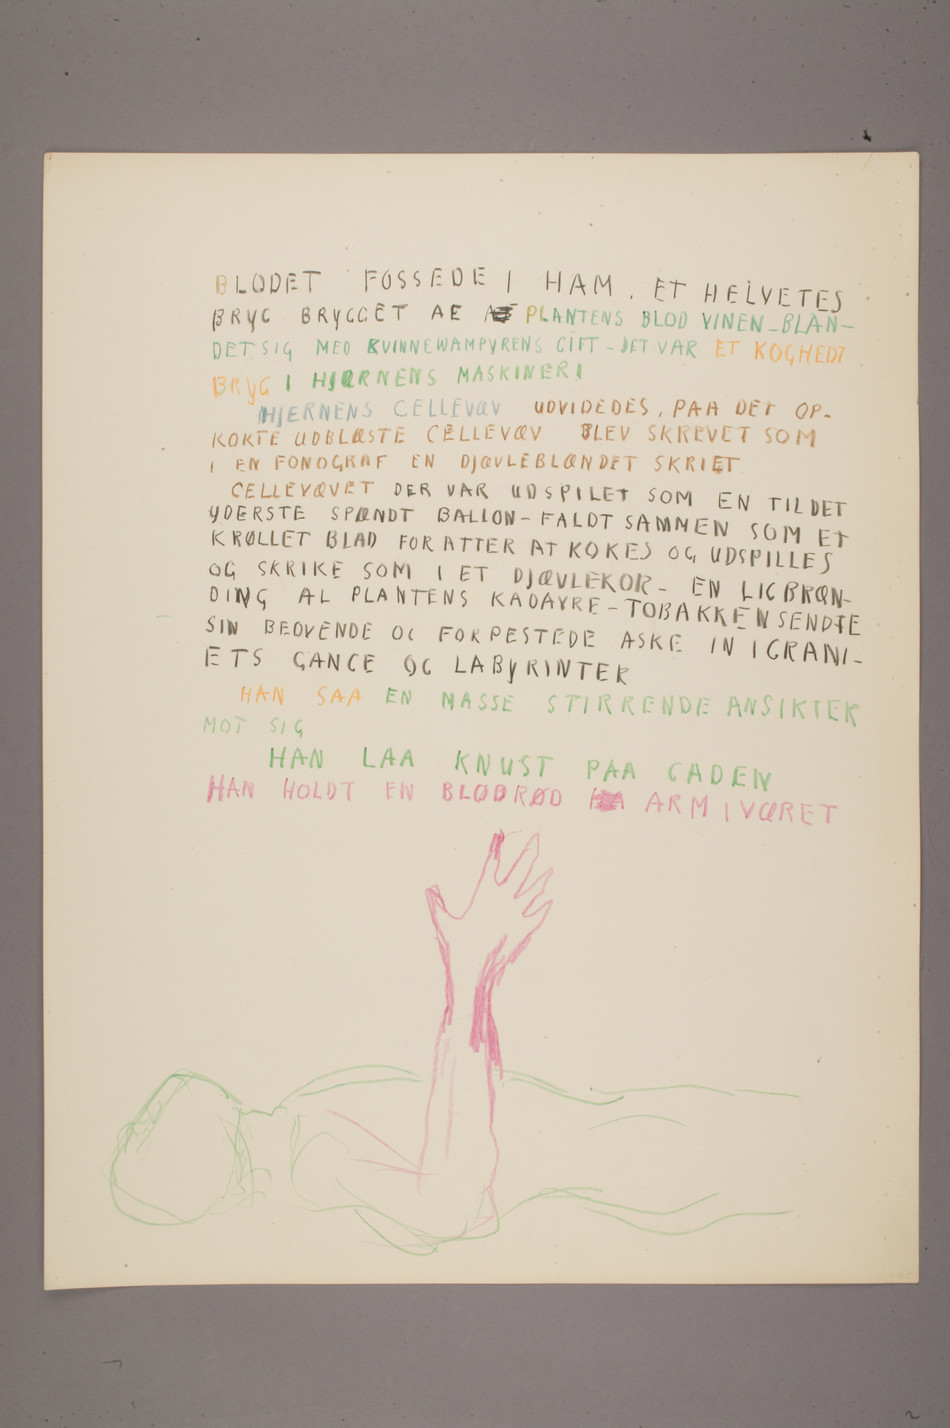 BLODET FOSSEDE I HAM. ET HELVETES
BRYG BRYGGET AE PLANTENS BLOD VINEN-BLAN-
DET SIG MED KVINNEWAMPYRENS GIFT-DET VAR ET KOGHEDT
BRYG I HJÆRNENS MASKINERI
HJERNENS CELLEVÆV UDVIDEDES, PAA DET OP-
KOKTE UDBLÆSTE CELLEVÆV BLEV SKREVET SOM
I EN FONOGRAF EN DJÆVLEBLÆNDET SKRIFT
CELLEVÆVET DER VAR UDSPILET SOM EN TIL DET
YDERSTE SPÆNDT BALLON-FALDT SAMMEN SOM ET
KRØLLET BLAD FOR ATTER AT KOKES OG UDSPILLES
OG SKRIKE SOM I ET DJÆVLEKOR- EN LIGBRÆN-
DING AL PLANTENS KADAVRE-TOBAKKEN SENDTE
SIN BEDVENDE OG FORPESTEDE ASKE IN I GRANI-
ETS GANGE OG LABYRINTER
HAN SAA EN MASSE STIRRENDE ANSIKTER
MOT SIG
HAN LAA KNUST PAA GADEN
HAN HOLDT EN BLODRØD ARM I VÆRET